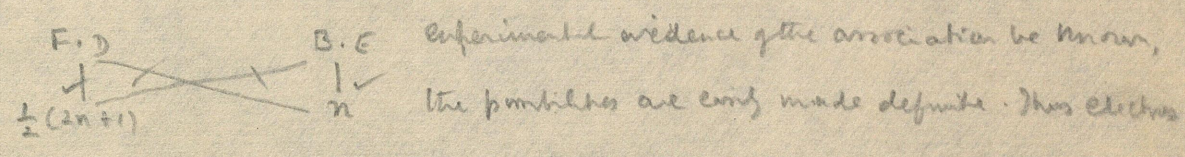 F.D B.E experimental evidence of the association be known,
½(2n+1) n the possibilities are easily made definite. Thus electrons